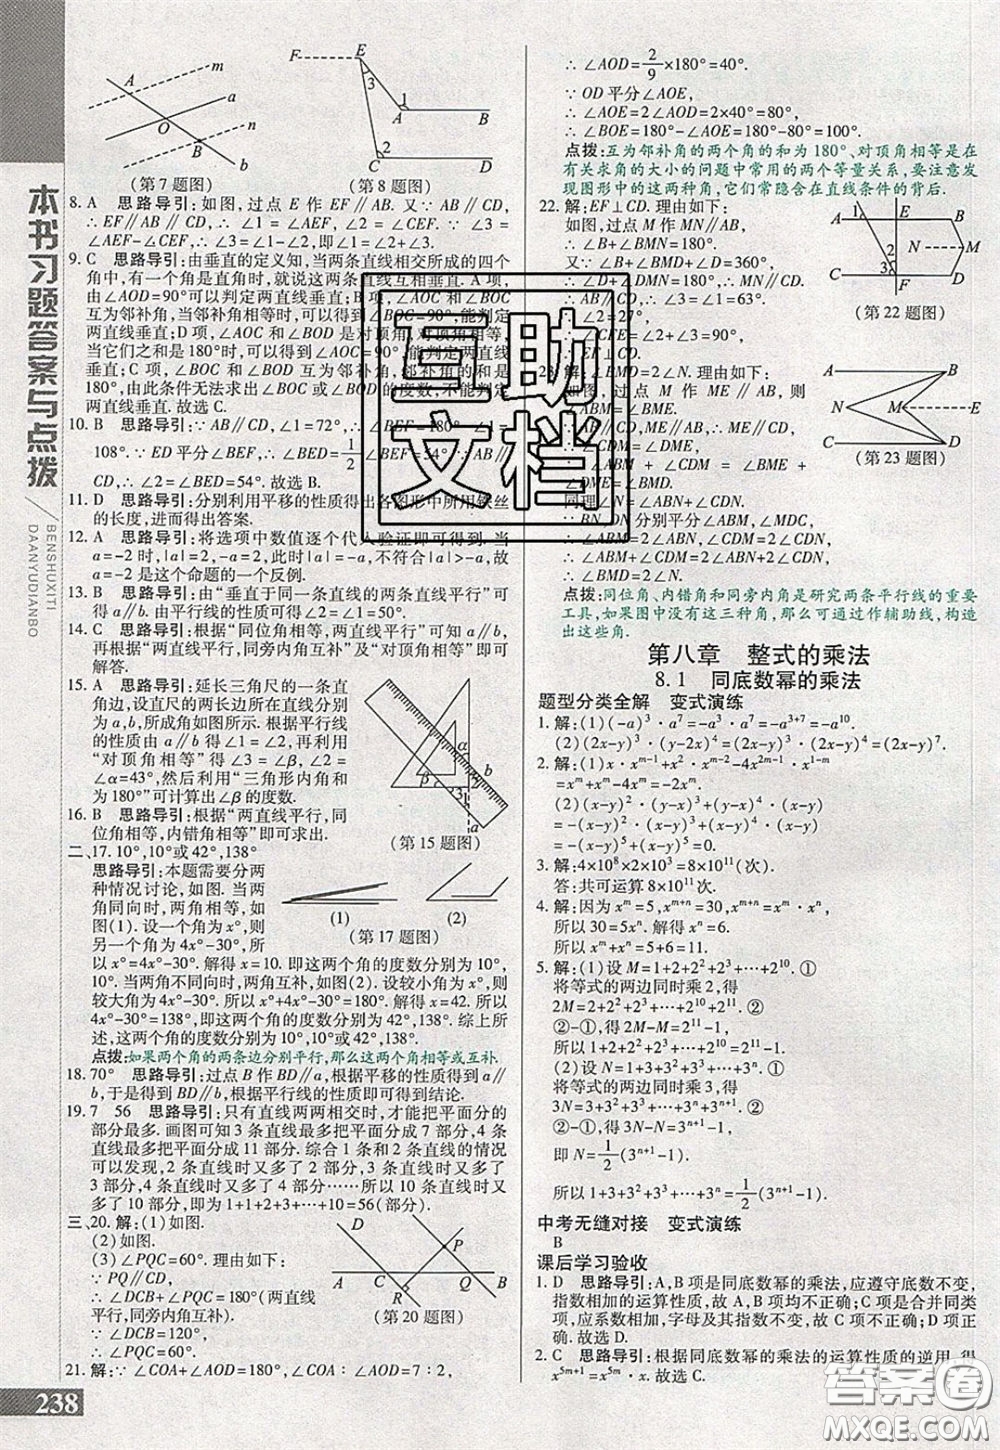 本书习题答案与点拨
BENSHUXITI
DAANYUDIANBO
(第7题图)
(第8题图)
8. A 思路导引:如图,过点 E 作 EF∥AB. 又∵AB∥CD,
∴EF∥AB∥CD,∴∠1=∠AEF,∠2=∠CEF. ∵∠3=
∠AEF-∠CEF,∴∠3=∠1-∠2,即∠1=∠2+∠3.
9. C 思路导引:由垂直的定义知,当两条直线相交所成的四个
角中,有一个角是直角时,就说这两条直线互相垂直. A 项,
由∠AOD=90°可以判定两直线垂直;B 项,
互为邻补角,当邻补角相等时,可求出∠BOC=90°,能判定
两直线垂直;D 项,∠AOC 和∠BOD 是对顶角,对顶角相等,
当它们之和是 180°时,可以求出∠AOC=90°,能判定两直线
垂直;C 项,∠AOC 和∠BOC 互为邻补角,邻补角的和为
180°,由此条件无法求出∠BOC 或∠BOD 的度数,不能判定
两直线垂直. 故选 C.
10. B 思路导引:∵AB∥CD,∴∠ABC=180°-∠1=
108°. ∵ED 平分∠ABC,∴∠BED=1/2∠ABC=54°. ∵AB∥
CD,∴∠2=∠BED=54°. 故选 B.
11. D 思路导引:分别利用平移的性质得出各图形中所用铁丝
的长度,进而得出答案.
12. A 思路导引:将选项中数值逐个代入验证即可得到. 当
a=-2 时,|a|=2,-a=2,此时|a|=-a,不符合|a|>-a,故
a=-2 是这个命题的一个反例.
13. B 思路导引:由“垂直于同一条直线的两条直线平行”可知
得 a∥b. 由平行线的性质可得∠2=∠1=50°.
14. C 思路导引:根据“同位角相等,两直线平行”可知 a∥b,
再根据“两直线平行,同旁内角互补”及“对顶角相等”即可
解答.
15. A 思路导引:延长三角尺的一条直
角边,设直尺的两长边所在的直线分别
为 a,b,所成角如图所示. 根据平行线
的性质由 a∥b 得∠1=∠2,再利用
“对顶角相等”得∠2=∠3,∠1=
∠α=43°,然后利用“三角形内角和
为 180°”可计算出∠β的度数.
(第15题图)
16. B 思路导引:根据“两直线平行,同
位角相等,内错角相等”即可求出.
二、17. 10°,10°或 42°,138°
思路导引:本题需要分两
种情况讨论,如图. 当两
角同向时,两角相等,如
图(1). 设一个角为 x°,则
另一个为 4x°-30°,所
(1)
(2)
(第17题图)
以 x°=4x°-30°. 解得 x=10,即这两个角的度数分别为 10°,
10°. 当两角不同向时,两角互补,如图(2). 设较小角为 x°,则
较大角为 4x°-30°. 所以 x°+4x°-30°=180°. 解得 x=42. 所以
4x°-30°=138°,即这两个角的度数分别为 42°,138°. 综上所
述,这两个角的度数分别为 10°,10°或 42°,138°.
点拨:如果两个角的两条边分别平行,那么这两个角相等或互补.
18. 70° 思路导引:过点 B 作 BD∥a,根据平移的性质得到 a∥
b,于是得到 BD∥b,根据平行线的性质即可得到结论.
19. 7 56 思路导引:只有直线两两相交时,才能把平面分的
部分最多. 画图可知 3 条直线最多把平面分成 7 部分,4 条
直线最多把平面分成 11 部分. 综合 1 条和 2 条直线的情况
可以发现,2 条直线时又多了 2 部分,3 条直线时又多了
3 部分,4 条直线时又多了 4 部分……10 条直线时又多
了 10 部分,即 1+1+2+3+…+10=56(部分).
三、20. 解:(1)如图.
(2)如图.
(3)∠PQC=60°. 理由如下:
∵PQ∥CD,
∴∠DCB+∠PQC=180°(两直线
平行,同旁内角互补).
∵∠DCB=120°,
∴∠PQC=60°.
(第20题图)
21. 解:∵∠COA+∠AOD=180°,∠COA∶∠AOD=7∶2,
238
∴∠AOD=2/9×180°=40°.
∵OD 平分∠AOE,
∴∠AOE=2∠AOD=2×40°=80°.
∴∠BOE=180°-∠AOE=180°-80°=100°.
点拨:互为邻补角的两个角的和为 180°、对顶角相等是在
有关求角的大小的问题中常用的两个等量关系,要注意发
现图形中的这两种角,它们常隐含在直线条件的背后.
22. 解:EF⊥CD. 理由如下:
如图,过点 M 作 MN∥AB,
∴∠B+∠BMN=180°.
∵∠B+∠BMD+∠D=360°,
(第22题图)
23. 解:∠BMD=2∠N. 理由如下:
(第23题图)
同理∠N=∠ABN+∠CDN.
∵BN,DN 分别平分∠ABM,∠MDC,
∴∠ABM+∠CDM=2∠ABN+2∠CDN.
∴∠BMD=2∠N.
点拨:同位角、内错角和同旁内角是研究两条平行线的重要
工具,如果图中没有这三种角,那么可通过作辅助线,构造
出这些角.
第八章 整式的乘法
8.1 同底数幂的乘法
题型分类全解 变式演练
1. 解:(1)(-a)³·a⁷=-a³·a⁷=-a³⁺⁷=-a¹⁰.
(2)(2x-y)³·(y-2x)⁴=(2x-y)³·(2x-y)⁴=(2x-y)⁷.
2. 解:(1)x·xᵐ⁻¹+x²·xᵐ⁻²-4x²ᵐ⁻¹·x¹⁻ᵐ
=xᵐ+xᵐ-4xᵐ=-2xᵐ.
(2)(x-y)²·(y-x)+(y-x)⁴·(x-y)
=-(x-y)²·(x-y)+(x-y)⁴·(x-y)
=-(x-y)³+(x-y)⁵.
3. 解:4×10⁸×2×10³=8×10¹¹(次).
答:共可运算 8×10¹¹次.
4. 解:因为 xᵐ=5,xᵐ⁺ⁿ=30,xᵐ⁺ⁿ=xᵐ·xⁿ,
所以 xⁿ=6.
所以 xᵐ+xⁿ=5+6=11.
5. 解:(1)设 M=1+2+2²+2³+…+2¹⁰. ①
将等式的两边同时乘 2,得
2M=2+2²+2³+…+2¹⁰+2¹¹. ②
②-①,得 2M-M=2¹¹-1.
所以 1+2+2²+2³+…+2¹⁰=2¹¹-1.
(2)设 N=1+3+3²+3³+…+3ⁿ, ①
将等式的两边同时乘 3,得
3N=3+3²+3³+…+3ⁿ+3ⁿ⁺¹. ②
②-①,得 3N-N=3ⁿ⁺¹-1,
即 N=1/2(3ⁿ⁺¹-1).
所以 1+3+3²+3³+…+3ⁿ=1/2(3ⁿ⁺¹-1).
中考无缝对接 变式演练
B
课后学习验收
1. D 思路导引:A,B 项是同底数幂的乘法,应遵守底数不变,
指数相加的运算性质,故 A,B 项均不正确;C 项是合并同类
项,应系数相加,字母及其指数不变,故 C 项不正确,D 项正
确. 故选 D.
2. C 思路导引:根据同底数幂的乘法的运算性质的逆用,得
x⁵ᵐ⁺¹=x⁵ᵐ·x. 故选 C.
互助
文档
答案圈
MXQE.COM